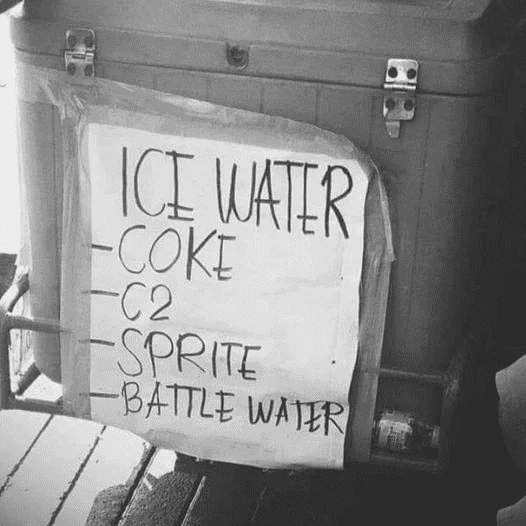 ICE WATER
- COKE
- C2
- SPRITE
- BATTLE WATER